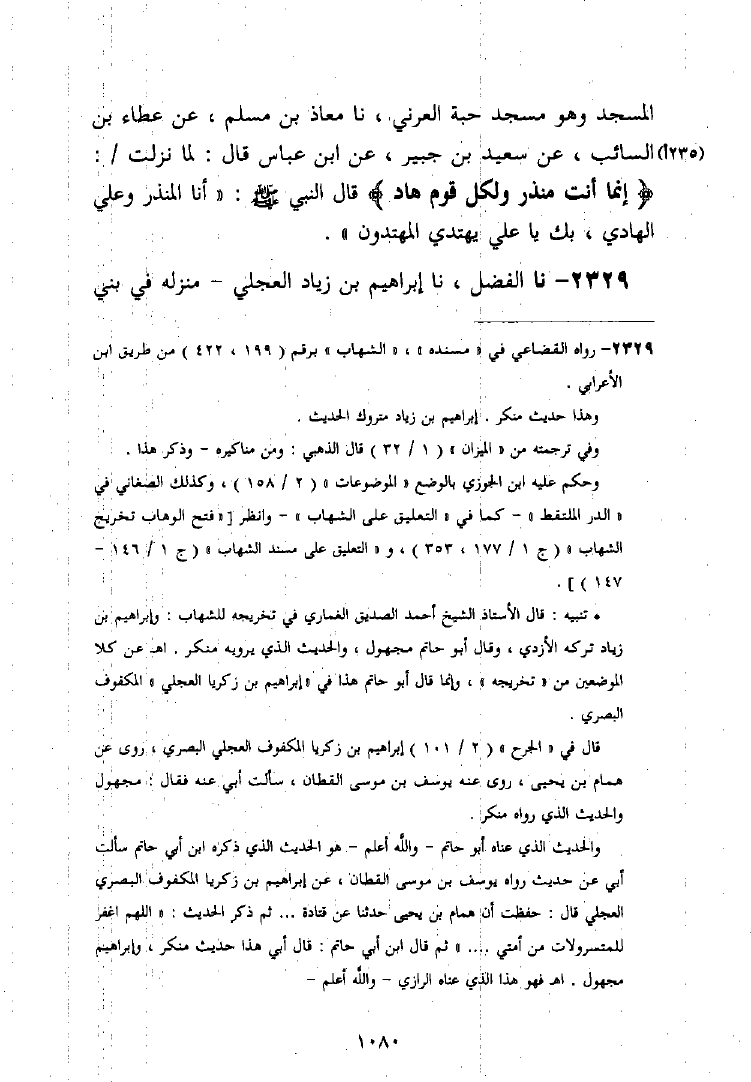 المسجد وهو مسجد حبة العرني ، نا معاذ بن مسلم ، عن عطاء بن
(٢٣٥أ) السائب ، عن سعيد بن جبير ، عن ابن عباس قال : لما نزلت / :
﴿ إنما أنت منذر ولكل قوم هاد ﴾ قال النبي ﷺ : « أنا المنذر وعلي
الهادي ، بك يا علي يهتدي المهتدون » .
٢٣٢٩- نا الفضل ، نا إبراهيم بن زياد العجلي - منزله في بني
٢٣٢٩- رواه القضاعي في « مسنده » ، « الشهاب » برقم ( ١٩٩ ، ٤٢٢ ) من طريق ابن
الأعرابي .
وهذا حديث منكر . إبراهيم بن زياد متروك الحديث .
وفي ترجمته من « الميزان » ( ١ / ٣٢ ) قال الذهبي : ومن مناكيره - وذكر هذا .
وحكم عليه ابن الجوزي بالوضع « الموضوعات » ( ٢ / ١٥٨ ) ، وكذلك الصغاني في
« الدر الملتقط » - كما في « التعليق على الشهاب » - وانظر [« فتح الوهاب تخريج
الشهاب » ( ج ١ / ١٧٧ ، ٣٥٣ ) ، و « التعليق على مسند الشهاب » ( ج ١ / ١٤٦ -
١٤٧ ) ] .
• تنبيه : قال الأستاذ الشيخ أحمد الصديق الغماري في تخريجه للشهاب : وإبراهيم بن
زياد تركه الأزدي ، وقال أبو حاتم مجهول ، والحديث الذي يرويه منكر . اهـ عن كلا
الموضعين من « تخريجه » ، وإنما قال أبو حاتم هذا في « إبراهيم بن زكريا العجلي » المكفوف
البصري .
قال في « الجرح » ( ٢ / ١٠١ ) إبراهيم بن زكريا المكفوف العجلي البصري ، روى عن
همام بن يحيى ، روى عنه يوسف بن موسى القطان ، سألت أبي عنه فقال : مجهول
والحديث الذي رواه منكر .
والحديث الذي عناه أبو حاتم - والله أعلم - هو الحديث الذي ذكره ابن أبي حاتم سألت
أبي عن حديث رواه يوسف بن موسى القطان ، عن إبراهيم بن زكريا المكفوف البصري
العجلي قال : حفظت أن همام بن يحيى حدثنا عن قتادة ... ثم ذكر الحديث : « اللهم اغفر
للمتسرولات من أمتي .... » ثم قال ابن أبي حاتم : قال أبي هذا حديث منكر ، وإبراهيم
مجهول . اهـ فهو هذا الذي عناه الرازي - والله أعلم -
١٠٨٠